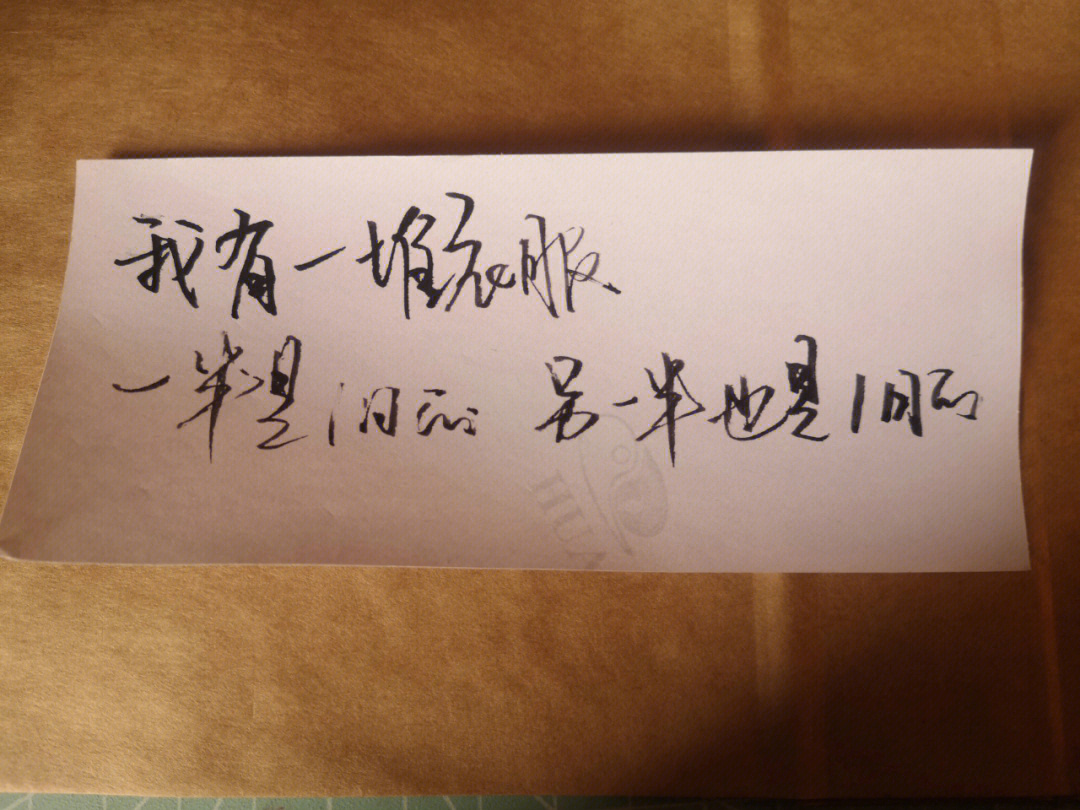 我有一堆衣服
一半是旧的 另一半也是旧的
HUA